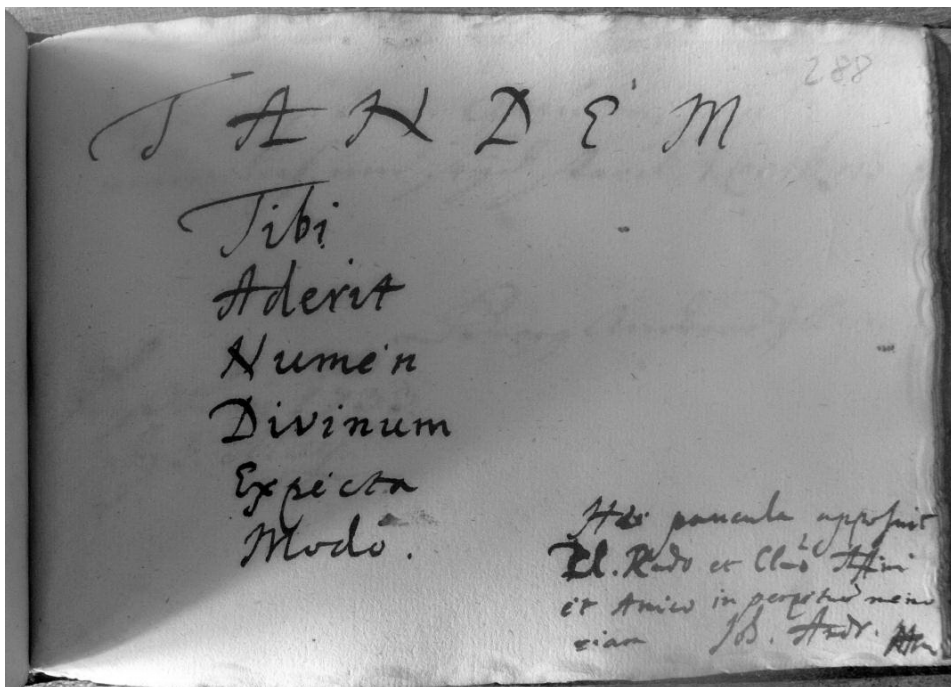 288
TANDEM
Tibi
Aderit
Numen
Divinum
Expecta
Modo.
paucula apposuit
Pl. Rndo et Clmo
et Amico in perpetuā memo
riam Joh. Andr.